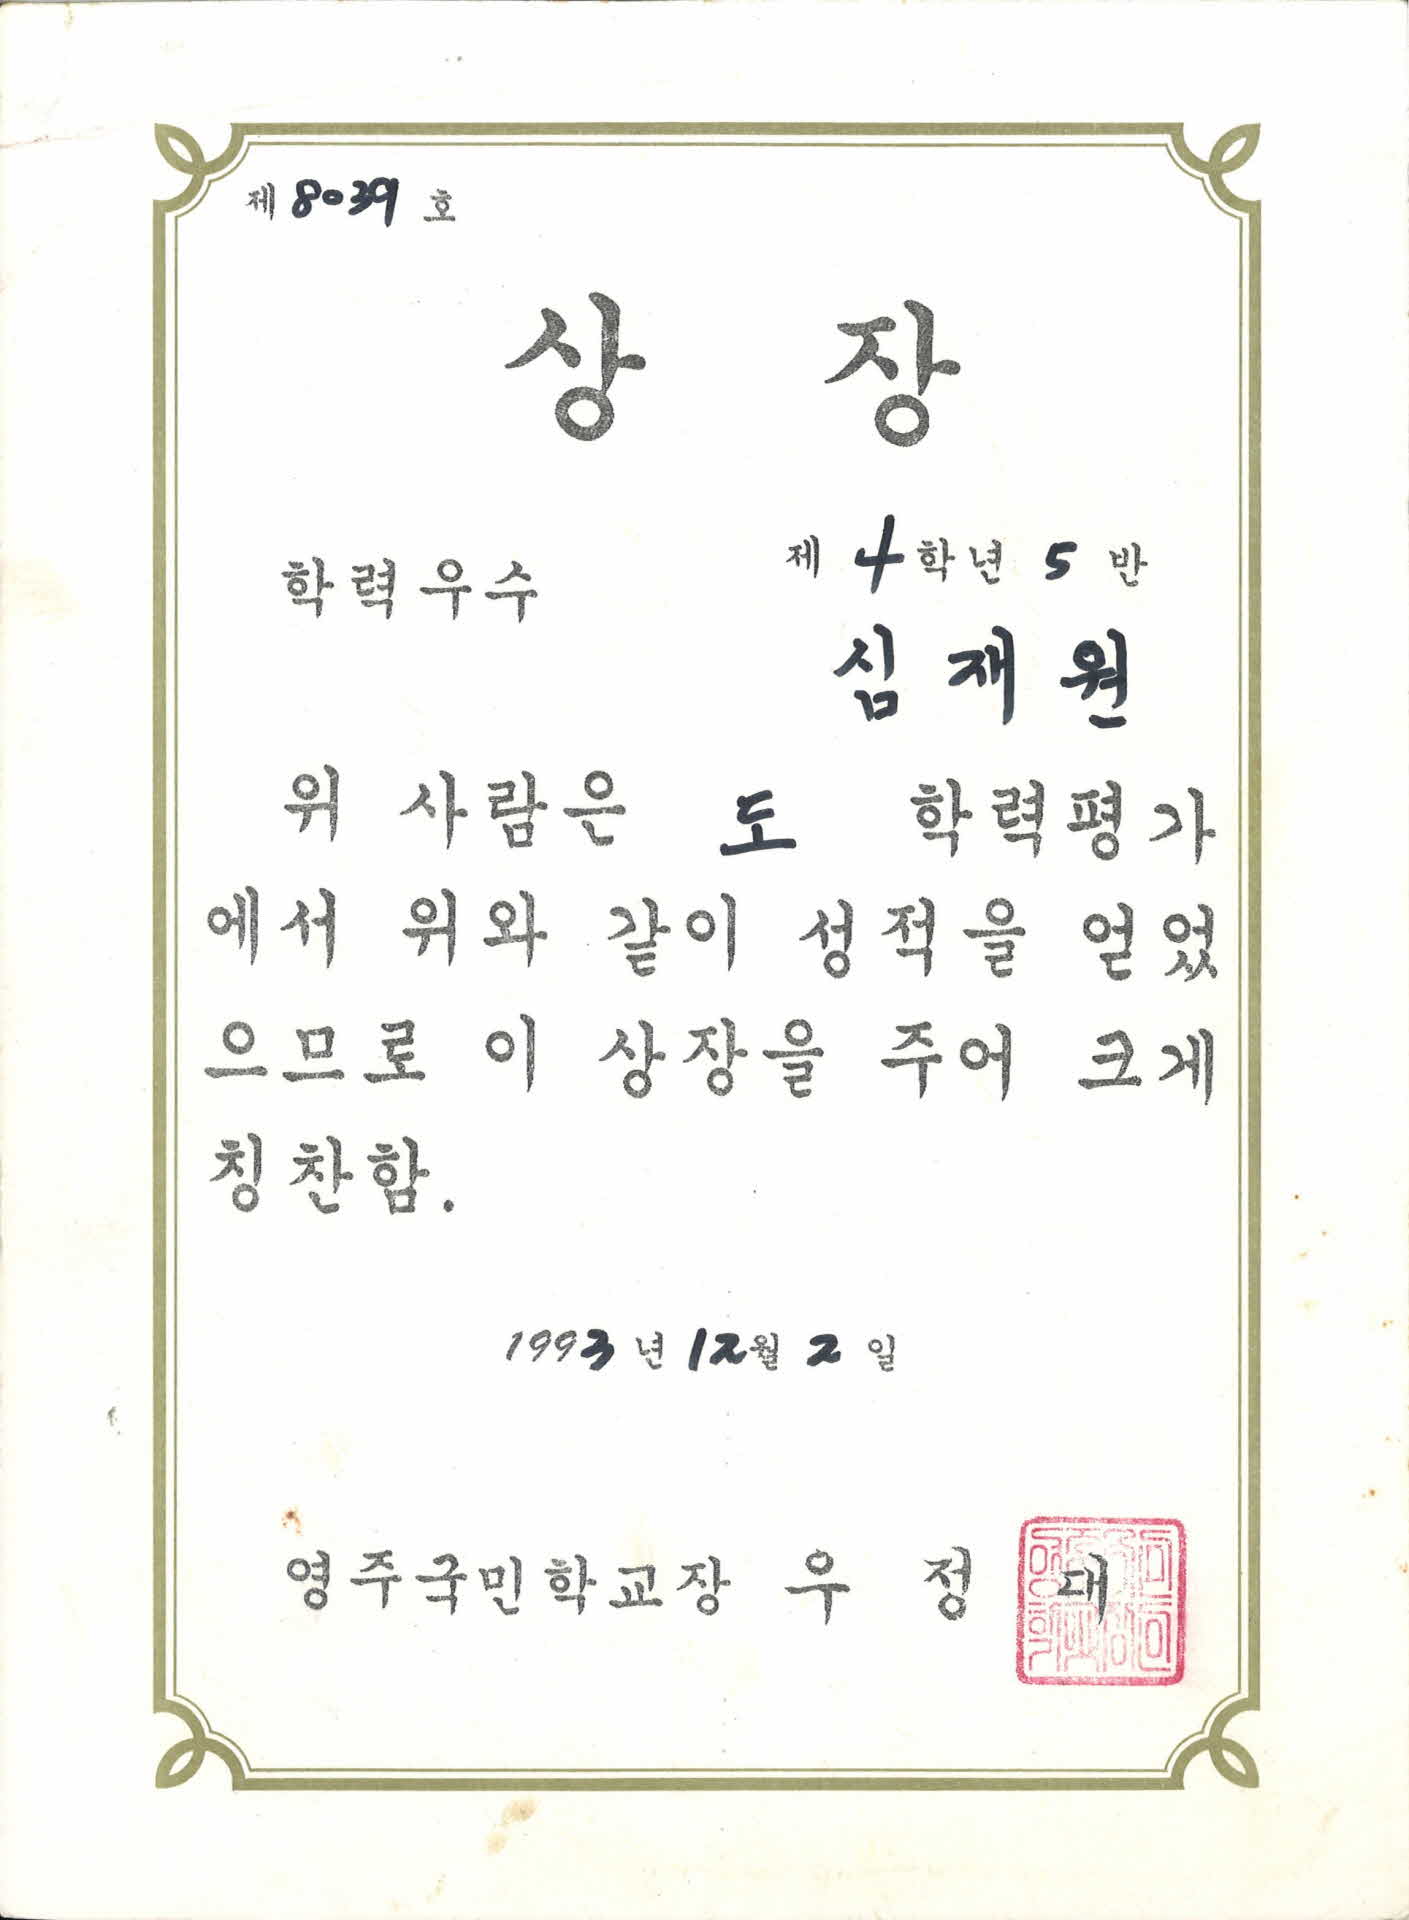 제 8039 호
상 장
학력우수
제 4 학년 5 반
심재원
위 사람은 도 학력평가
에서 위와 같이 성적을 얻었
으므로 이 상장을 주어 크게
칭찬함.
1993 년 12월 2 일
영주국민학교장 우 정 대